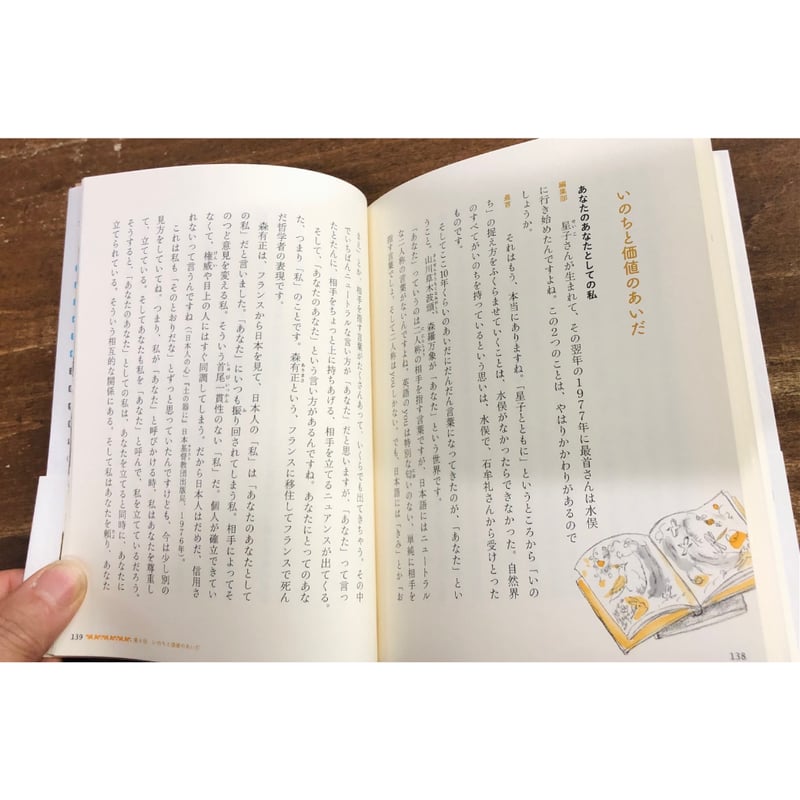 いのちと価値のあいだ
あなたのあなたとしての私
編集部
星子さんが生まれて、その翌年の1977年に最首さんは水俣
に行き始めたんですよね。この2つのことは、やはりかかわりがあるので
しょうか。
最首
それはもう、本当にありますね。「星子とともに」というところから「いの
ち」の捉え方をふくらませていくことは、水俣がなかったらできなかった。自然界
のすべてがいのちを持っているという思いは、水俣で、石牟礼さんから受けとった
ものです。
そしてここ10年くらいのあいだにだんだん言葉になってきたのが、「あなた」とい
うこと。山川草木波頭、森羅万象が「あなた」という世界です。
「あなた」っていうのは二人称の相手を指す言葉ですが、日本語にはニュートラル
な二人称の言葉がないんですよね。英語のyouは特別な匂いのない、単純に相手を
指す言葉でしょ、そして二人称はyouしかない。でも、日本語には「きみ」とか「お
まえ」とか、相手を指す言葉がたくさんあって、いくらでも出てきちゃう。その中
でいちばんニュートラルな言い方が「あなた」だと思いますが、「あなた」って言っ
たとたんに、相手をちょっと上に持ちあげる、相手を立てるニュアンスが出てくる。
そして、「あなたのあなた」という言い方があるんですね。あなたにとってのあな
た、つまり「私」のことです。森有正という、フランスに移住してフランスで死ん
だ哲学者の表現です。
森有正は、フランスから日本を見て、日本人の「私」は「あなたのあなたとして
の私」だと言いました。「あなた」にいつも振り回されてしまう私。相手によってそ
のつど意見を変える私。そういう首尾一貫性のない「私」だ。個人が確立できてい
なくて、権威や目上の人にはすぐ同調してしまう。だから日本人はだめだ、信用さ
れないって言うんですね(「日本人の心」『土の器に』日本基督教団出版局、1976年)。
これは私も「そのとおりだな」とずっと思っていたんですけども、今は少し別の
見方をしていてね。つまり、私が「あなた」と呼びかける時、私はあなたを尊重し
て、立てている。そしてあなたも私を「あなた」と呼んで、私を立てているだろう。
そうすると、「あなたのあなた」としての私は、あなたを立てると同時に、あなたに
立てられている。そういう相互的な関係にある。そして私はあなたを頼り、あなた
138
139
いのちと価値のあいだ